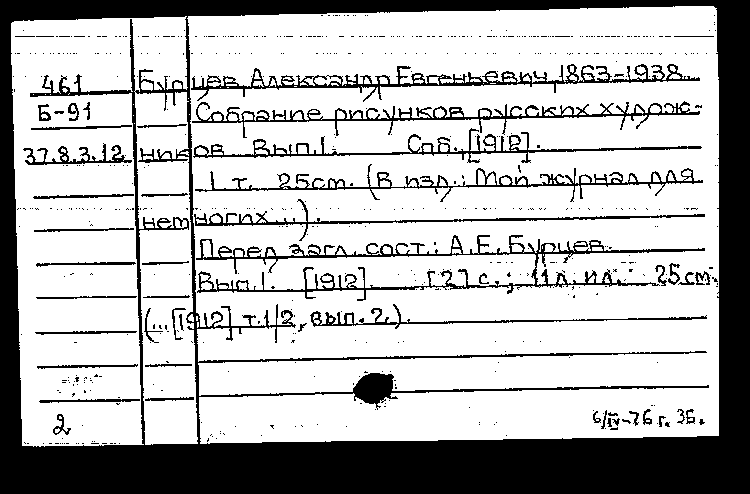 461 Бурцев, Александр Евгеньевич, 1863-1938.
Б-91 Собрание рисунков русских худож-
37.8.3.12 ников. Вып.1. Спб., [1912].
1 т. 25см. (В изд.: Мой журнал для
немногих...).
Перед загл. сост.: А.Е.Бурцев.
Вып.1. [1912]. [2] с.; 11 л. ил. 25см.
(...[1912], т.1/2, вып.2.).
2 6/IV-76 г. ЗБ.